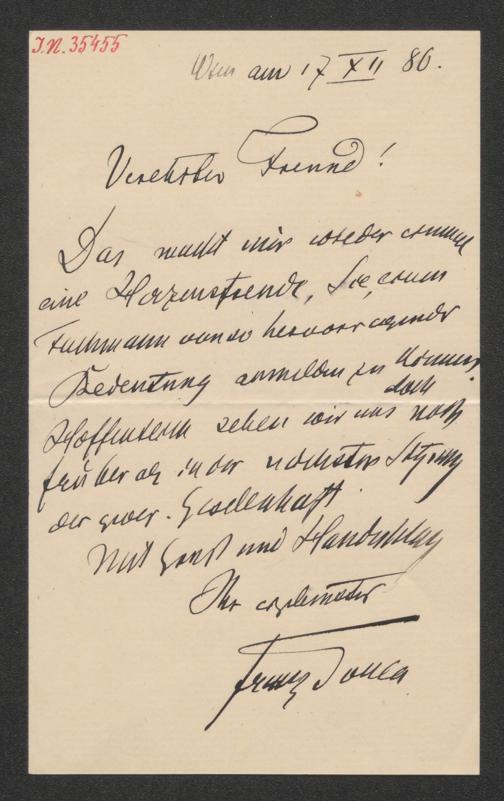 I.N. 35455
Wien am 17 XII 86.
Verehrter Freund!
Das macht mir wieder einmal
eine Herzensfreude, Sie, einen
Fachmann von so hervorragender
Bedeutung anmelden zu können.
Hoffentlich sehen wir uns doch noch
früher als in der nächsten Sitzung
der Gesellschaft.
Mit Gruß und Handschlag
Ihr ergebenster
Franz